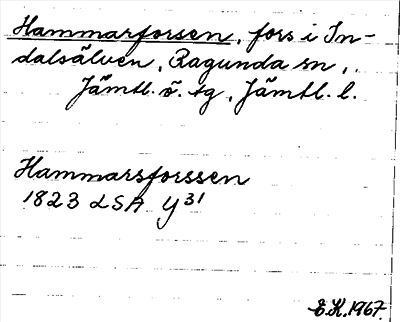 Hammarforsen, fors i In-
dalsälven, Ragunda sn,
Jämtl. ö. tg, Jämtl. l.
Hammarsforssen
1823 LSA Y31
E.K. 1967.